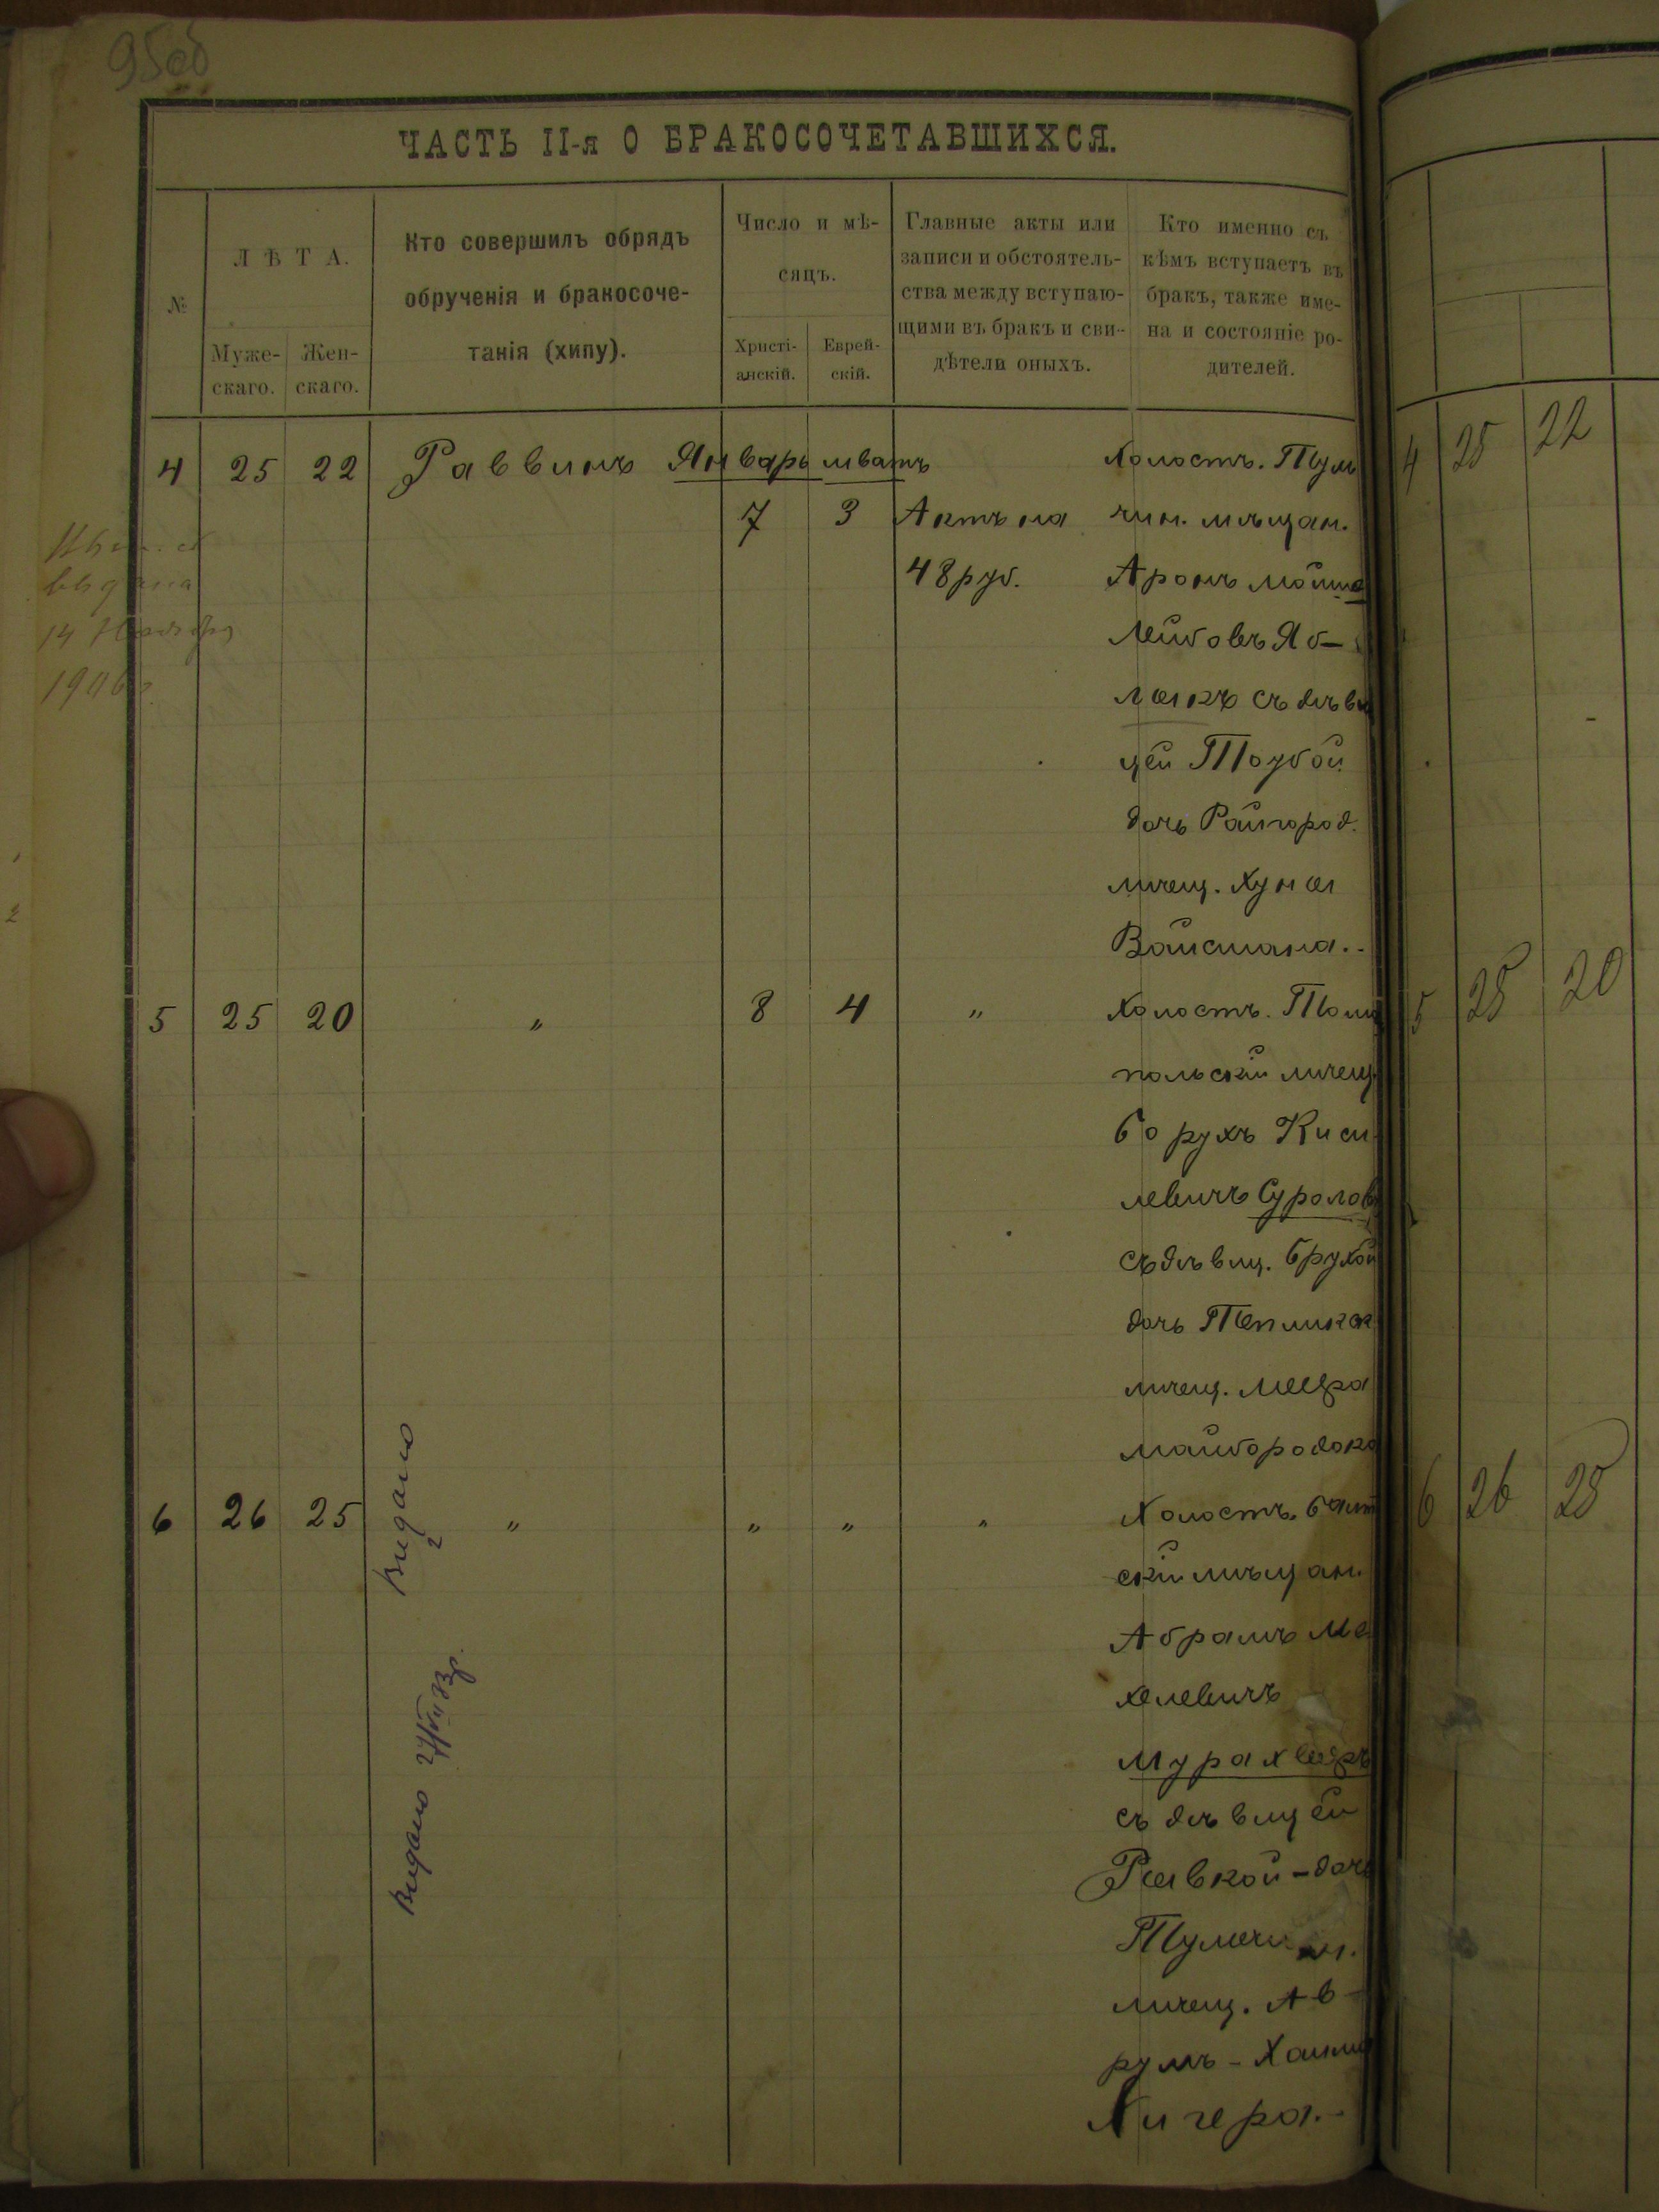 95об
ЧАСТЬ II-я О БРАКОСОЧЕТАВШИХСЯ.
№
ЛѢТА.
Муже-
скаго.
Жен-
скаго.
Кто совершилъ обрядъ
обрученія и бракосоче-
танія (хипу).
Число и мѣ-
сяцъ.
Христі-
анскій.
Еврей-
скій.
Главные акты или
записи и обстоятель-
ства между вступаю-
щими въ бракъ и сви-
дѣтели оныхъ.
Кто именно съ
кѣмъ вступаетъ въ
бракъ, также име-
на и состояніе ро-
дителей.
4 25 22 Раввинъ Январь шватъ Холостъ. Туль
7 3 Актъ на чин. мѣщан.
48 руб. Аронъ Мошко
Лейбовъ Яб-
лонкъ съ дѣви
цей Тоубой
дочь Райгород.
мѣщ. Хуна
Вайсмана.
5 25 20 „ 8 4 „ Холостъ. Тома
польскій мѣщ.
Борухъ Киси
левичъ Суролов
съ дѣвиц. Брухой
дочь Теплицк
мѣщ. Меера
Майбородок
6 26 25 „ „ „ „ Холостъ. Балт
скій мѣщан.
Абрамъ Ме
хелевичъ
Мурахверъ
съ дѣвицей
Ривкой - дочь
Тульчин.
мѣщ. Ав-
румъ - Хаима
Хигера.-
выдана
14 Ноября
1906 г.
Видано
Видано
4 25 22
5 25 20
6 26 25